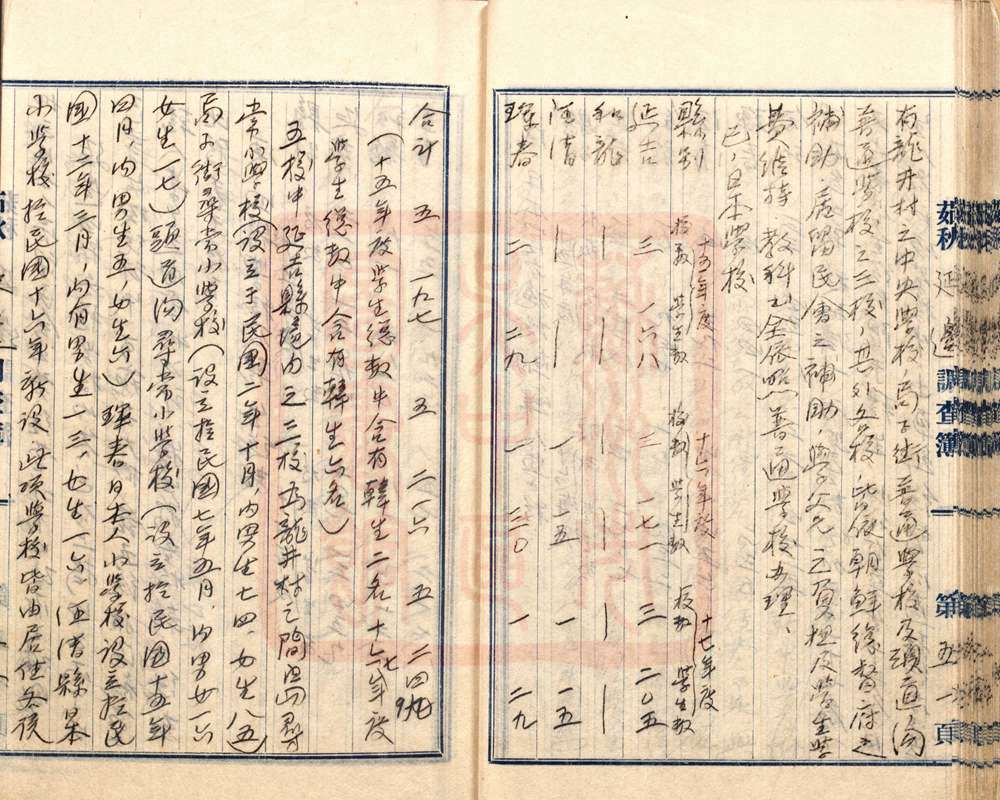 茹秋 延邊調查簿 一 第五一頁
有龍井村之中央學校，局子街普通學校及頭道溝
普通學校之三校，其外各校，皆依朝鮮總督府之
補助，居留民會之補助，學父兄之負担及學生學
費維持，教科書全依照普通學校辦理，
己，日本學校
十五年度 十六年度 十七年度
縣別 校數 學生數 校數 學生數 校數 學生數
延吉 三 一六八 三 一七一 三 二〇五
和龍 — — — — — —
汪清 — — 一 一五 一 一五
琿春 二 二九 一 三〇 一 二九
合計 五 一九七 五 二一六 五 二四九
（十五年度學生總數中含有韓生二名，十七年度
學生總數中含有韓生六名）
五校中延吉縣境內之三校為龍井村之間島尋
常小學校（設立于民國二年十月，內男生七四，女生八五）
局子街尋常小學校（設立於民國七年五月，內男女一六
女生一七）頭道溝尋常小學校（設立於民國十五年
四月，內男生五，女生六）琿春日本人小學校設立於民
國十二年三月，內有男生一三，女生一六，汪清縣日本
小學校於民國十六年新設，此項學校皆由居住各該